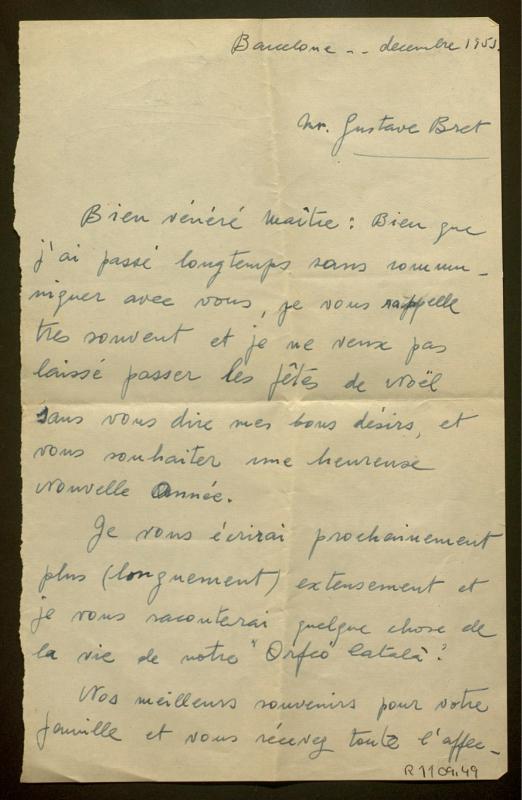 Barcelone -- decembre 1953.
Mr. Gustave Bret
Bien vénéré maître: Bien que
j'ai passé longtemps sans commu-
niquer avec vous, je vous rappelle
très souvent et je ne veux pas
laissé passer les fêtes de Noël
sans vous dire mes bons désirs, et
vous souhaiter une heureuse
Nouvelle Année.
Je vous écrirai prochainement
plus (longuement) extensement et
je vous raconterai quelque chose de
la vie de notre "Orfeó Català".
Nos meilleurs souvenirs pour votre
famille et vous récevez toute l'affec-
R 1109.49